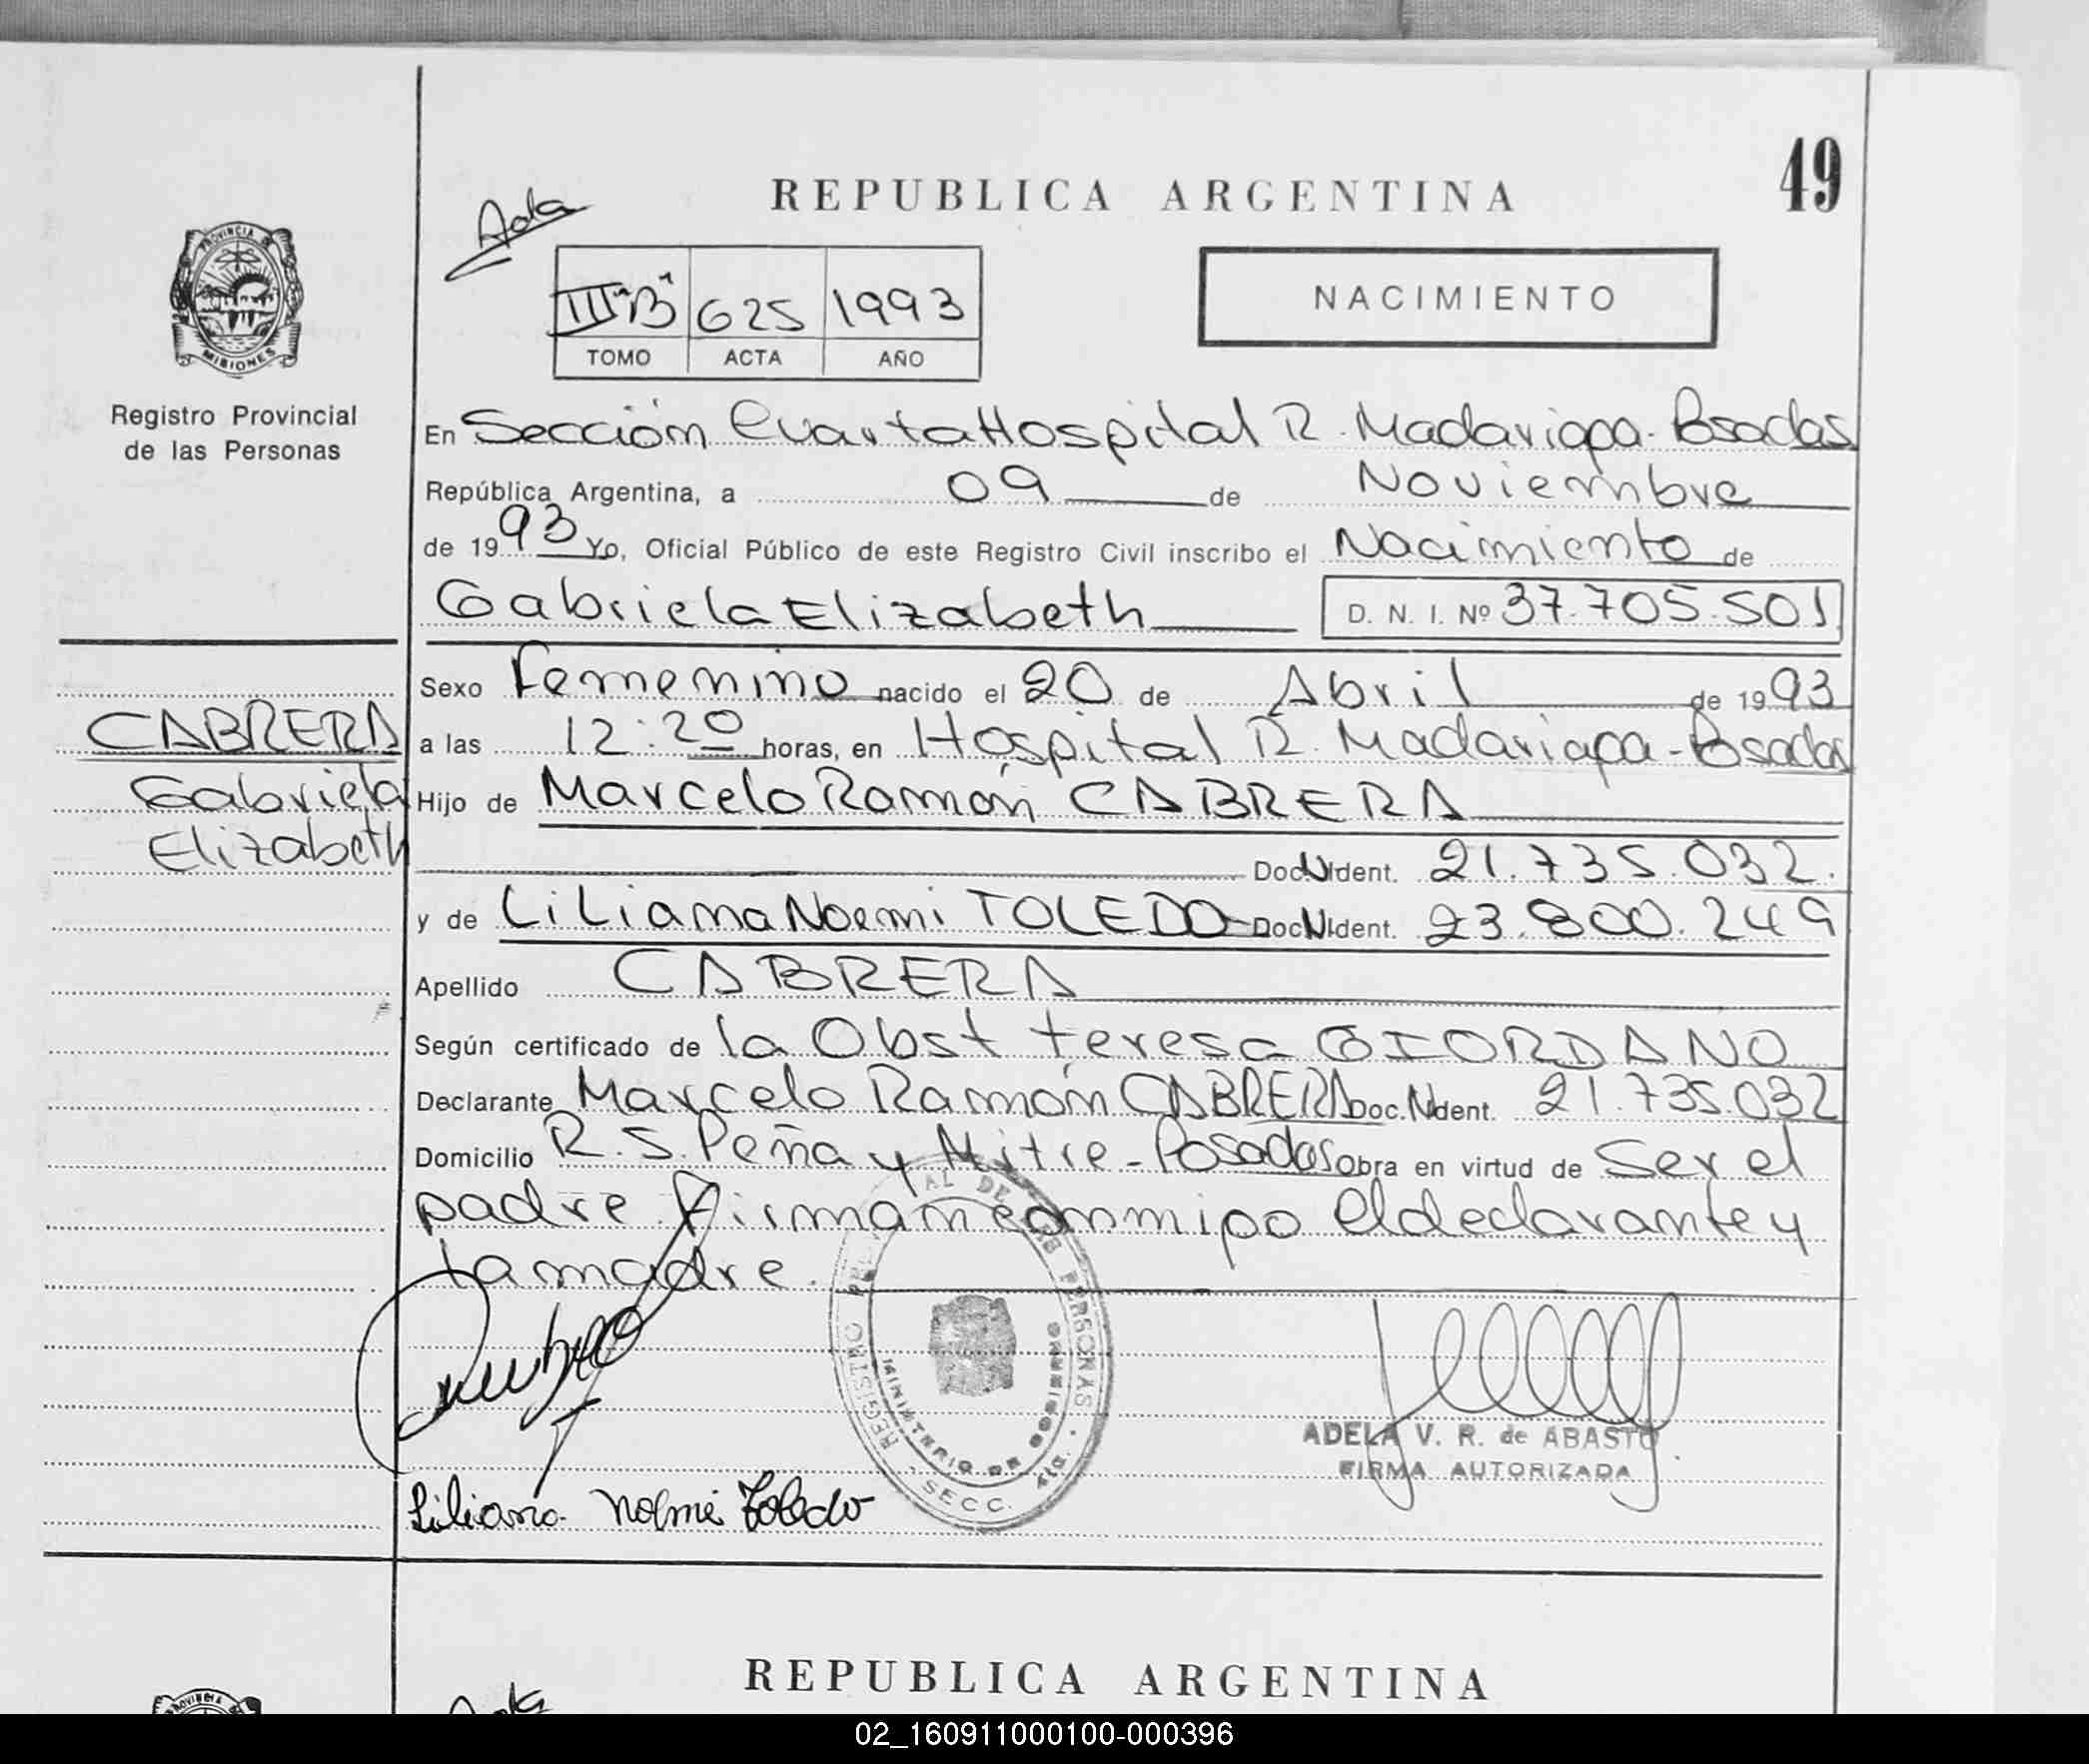 49
REPUBLICA ARGENTINA
Acta
III "B" 625 1993
TOMO ACTA AÑO
NACIMIENTO
PROVINCIA DE
MISIONES
Registro Provincial
de las Personas
En Sección Cuarta Hospital R. Madariaga - Posadas
República Argentina, a 09 de Noviembre
de 1993 Yo, Oficial Público de este Registro Civil inscribo el Nacimiento de
Gabriela Elizabeth D. N. I. Nº 37.705.501
Sexo Femenino nacido el 20 de Abril de 1993
a las 12:20 horas, en Hospital R. Madariaga - Posadas
Hijo de Marcelo Ramón CABRERA
Doc.N.Ident. 21.735.032.
y de Liliana Noemi TOLEDO Doc.N.Ident. 23.800.249
Apellido CABRERA
Según certificado de la Obst teresa GIORDANO
Declarante Marcelo Ramón CABRERA Doc.N.Ident. 21.735.032
Domicilio R. S. Peña y Mitre - Posadas Obra en virtud de Ser el
padre firman conmigo el declarante y
la madre.
CABRERA
Gabriela
Elizabeth
REGISTRO DE LAS PERSONAS
MINISTERIO DE GOBIERNO
SECC.
ADELA V. R. de ABASTO
FIRMA AUTORIZADA
Liliana Noemi Toledo
REPUBLICA ARGENTINA
02_160911000100-000396